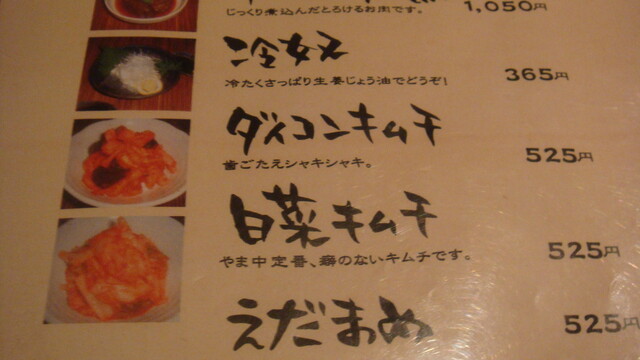 じっくり煮込んだとろけるお肉です。
1,050円
冷奴
冷たくさっぱり生姜じょう油でどうぞ!
365円
ダイコンキムチ
歯ごたえシャキシャキ。
525円
白菜キムチ
やま中定番、癖のないキムチです。
525円
えだまめ
525円